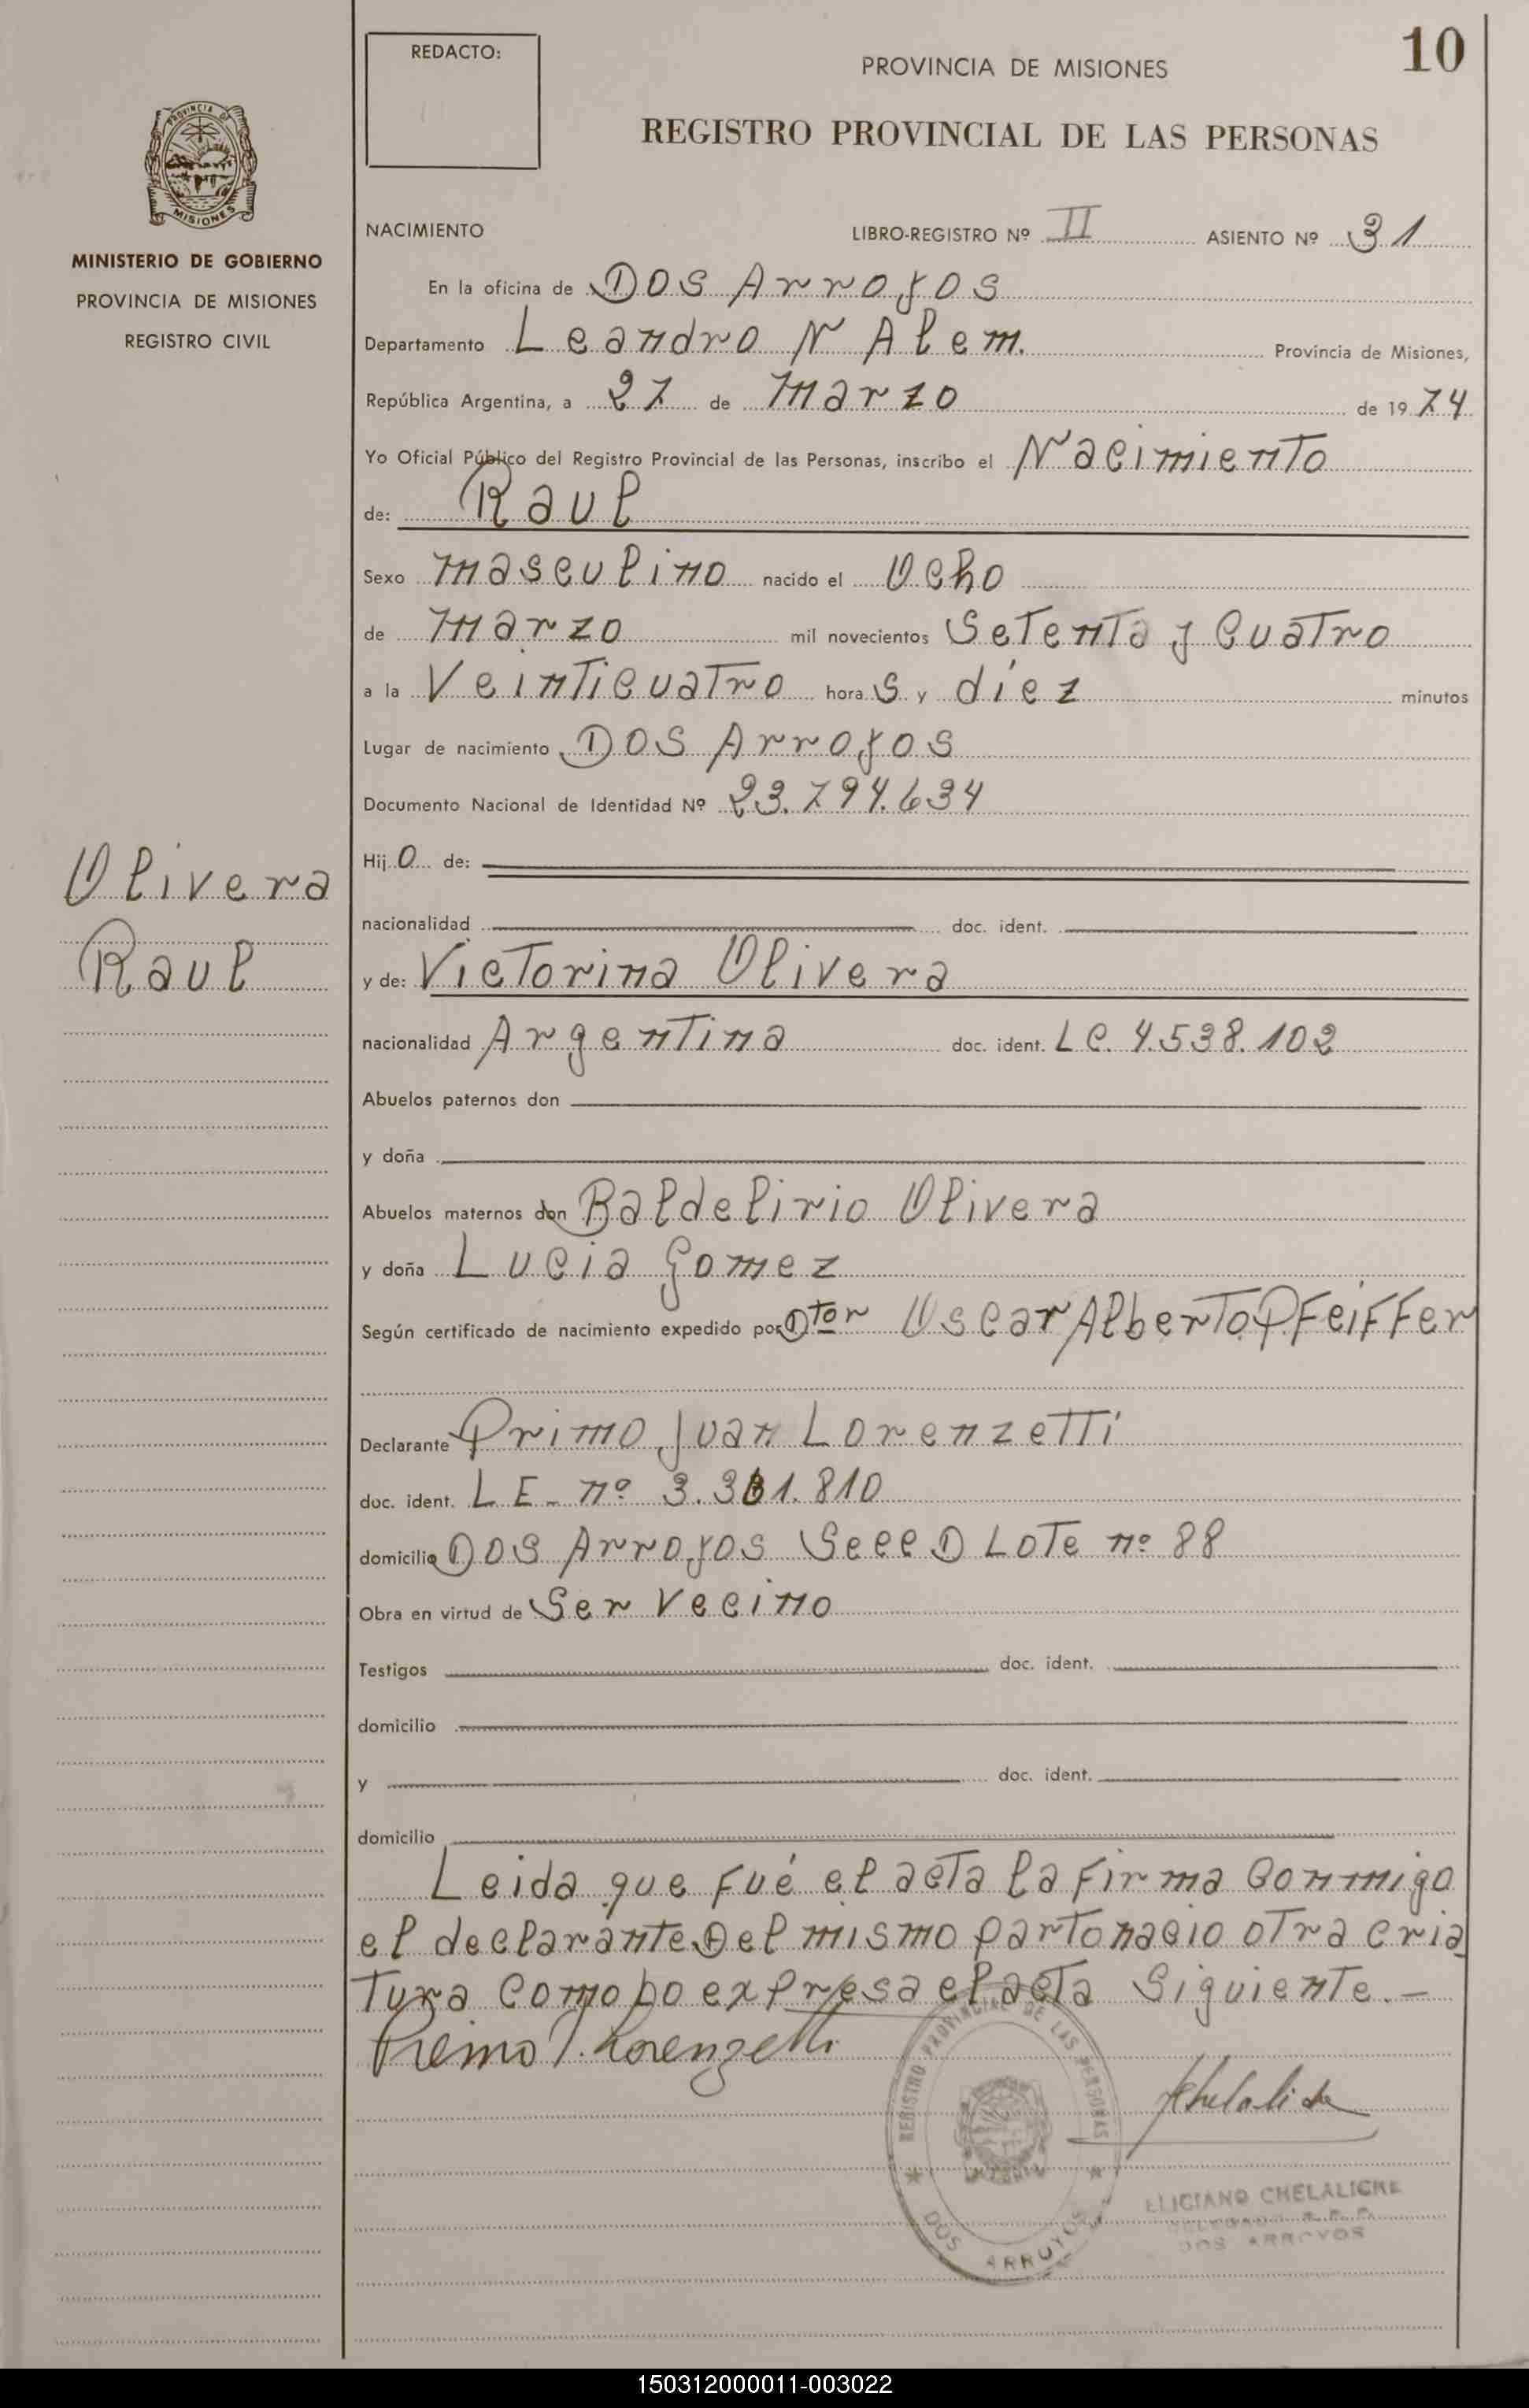 REDACTO:
10
PROVINCIA DE MISIONES
REGISTRO PROVINCIAL DE LAS PERSONAS
PROVINCIA DE
MISIONES
MINISTERIO DE GOBIERNO
PROVINCIA DE MISIONES
REGISTRO CIVIL
NACIMIENTO LIBRO-REGISTRO Nº II ASIENTO Nº 31
En la oficina de Dos Arroyos
Departamento Leandro N Alem. Provincia de Misiones,
República Argentina, a 27 de Marzo de 1974
Yo Oficial Público del Registro Provincial de las Personas, inscribo el Nacimiento
de: Raul
Sexo masculino nacido el Ocho
de Marzo mil novecientos Setenta y Cuatro
a la Veinticuatro horas y díez minutos
Lugar de nacimiento Dos Arroyos
Documento Nacional de Identidad Nº 23.794.634
Olivera
Raul
Hijo de:
nacionalidad doc. ident.
y de: Victorina Olivera
nacionalidad Argentina doc. ident. LC. 4.538.102
Abuelos paternos don
y doña
Abuelos maternos don Baldelirio Olivera
y doña Lucia Gomez
Según certificado de nacimiento expedido por Dtor Oscar Alberto Pfeiffer
Declarante Primo Juan Lorenzetti
doc. ident. LE- nº 3.361.810
domicilio Dos Arroyos Secc D Lote nº 88
Obra en virtud de Ser Vecino
Testigos doc. ident.
domicilio
y doc. ident.
domicilio
Leida que fué el acta la firma Conmigo
el declarante Del mismo parto nacio otra cria
tura como lo expresa el acta Siguiente.-
Primo J. Lorenzetti
REGISTRO PROVINCIAL DE LAS PERSONAS
DOS ARROYOS
ELICIANO CHELALICHE
DELEGADO R.P.P.
DOS ARROYOS
150312000011-003022